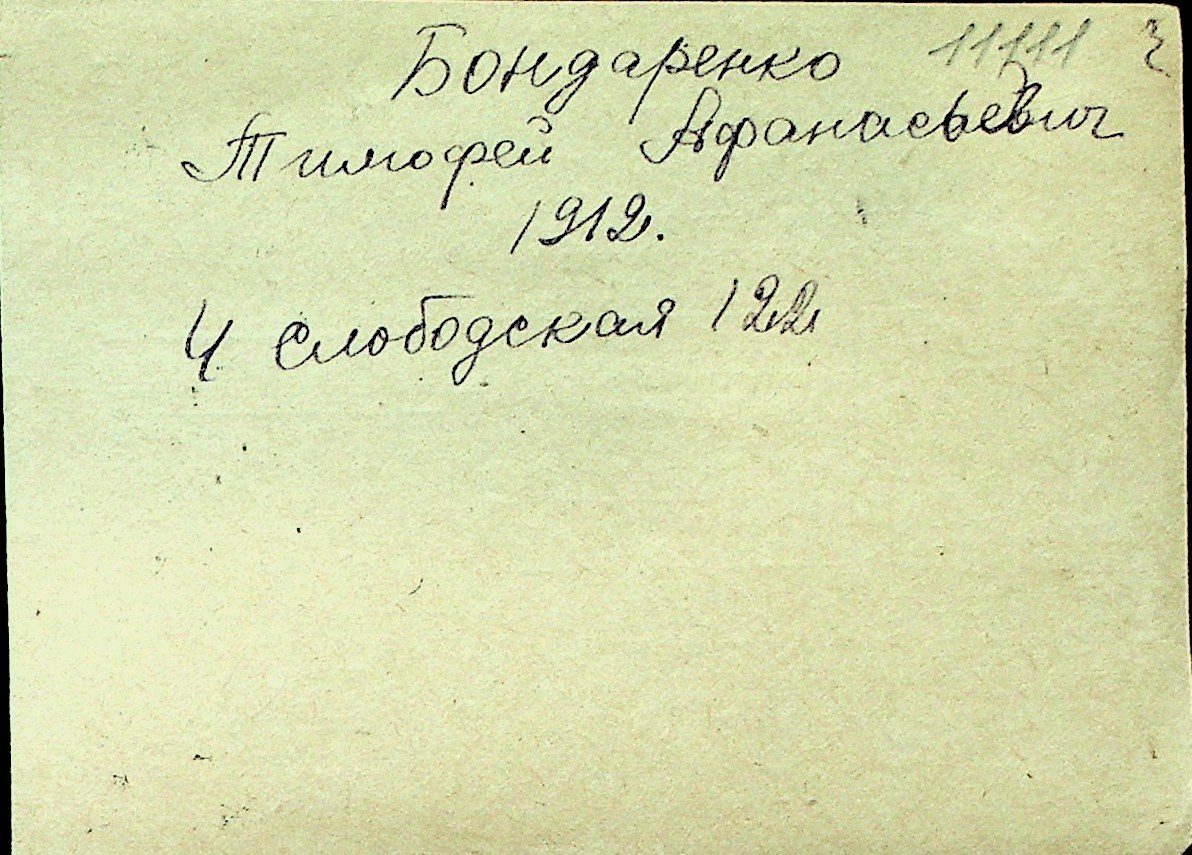 Бондаренко 11111
Тимофей Афанасьевич
1912.
4 Слободская 122